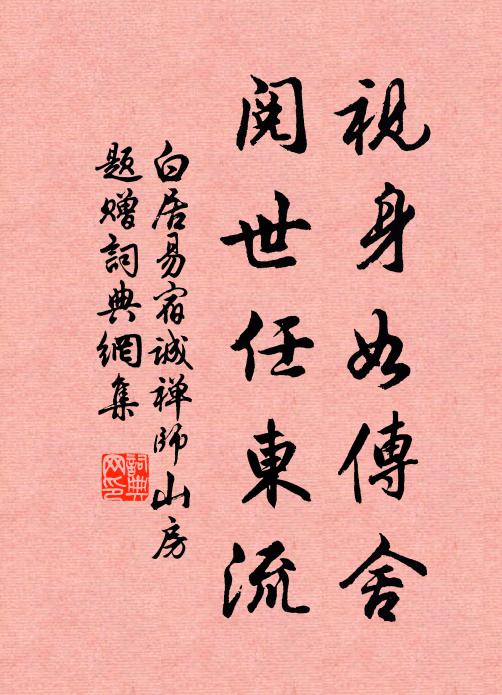 視身如傳舍
閱世任東流
白居易宿誠禅師山房
題贈詞典網集
詞典
网印